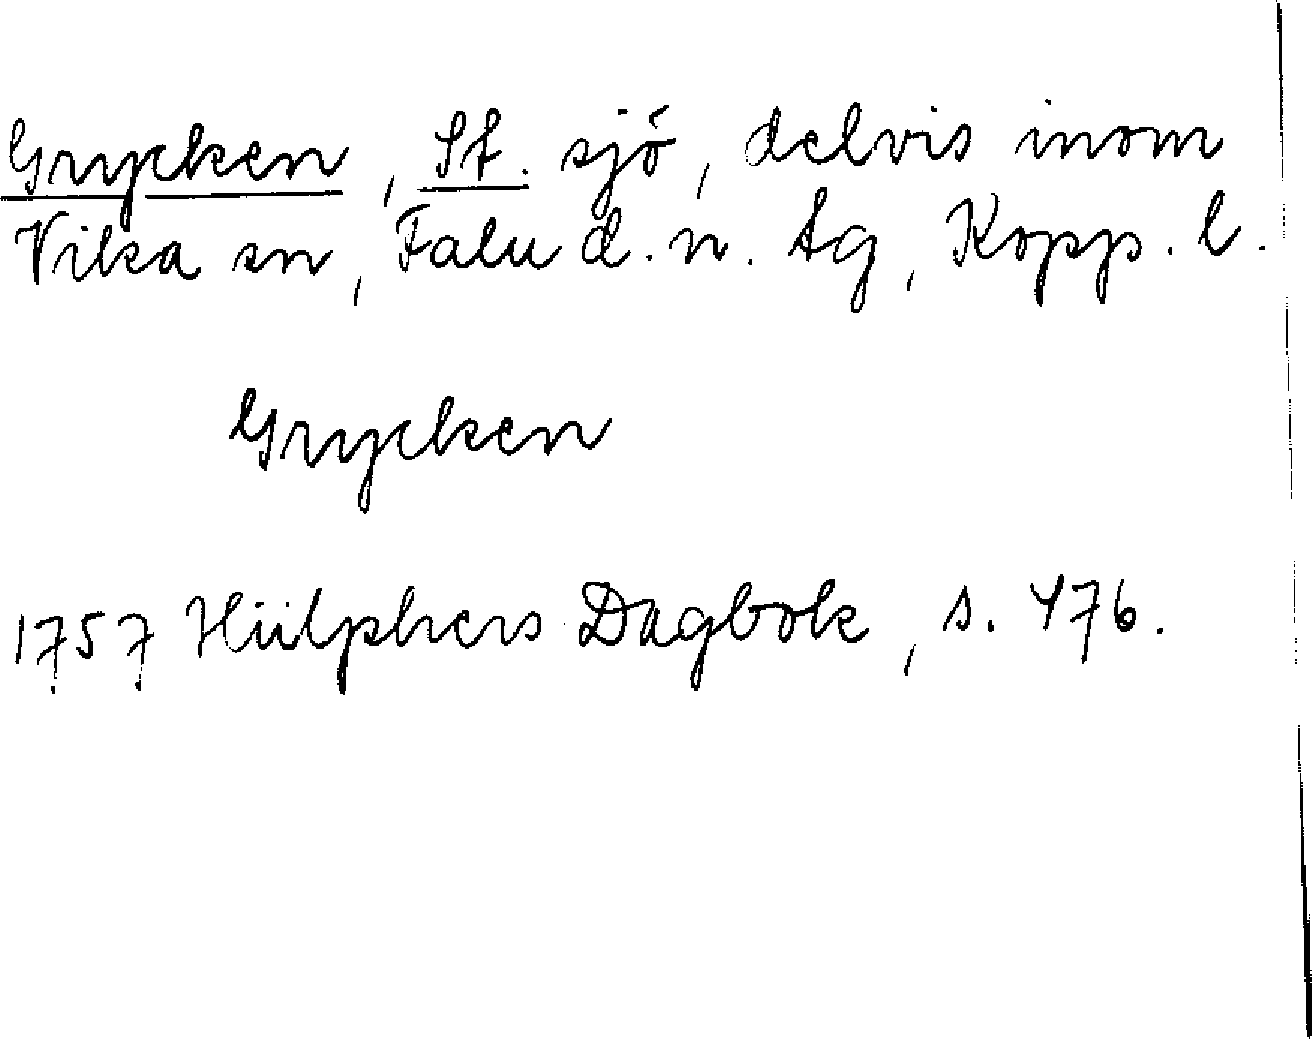 Grycken, St. sjö, delvis inom
Vika sn, Falu d.n. tg, Kopp. l.
Grycken
1757 Hülphers Dagbok, s. 476.